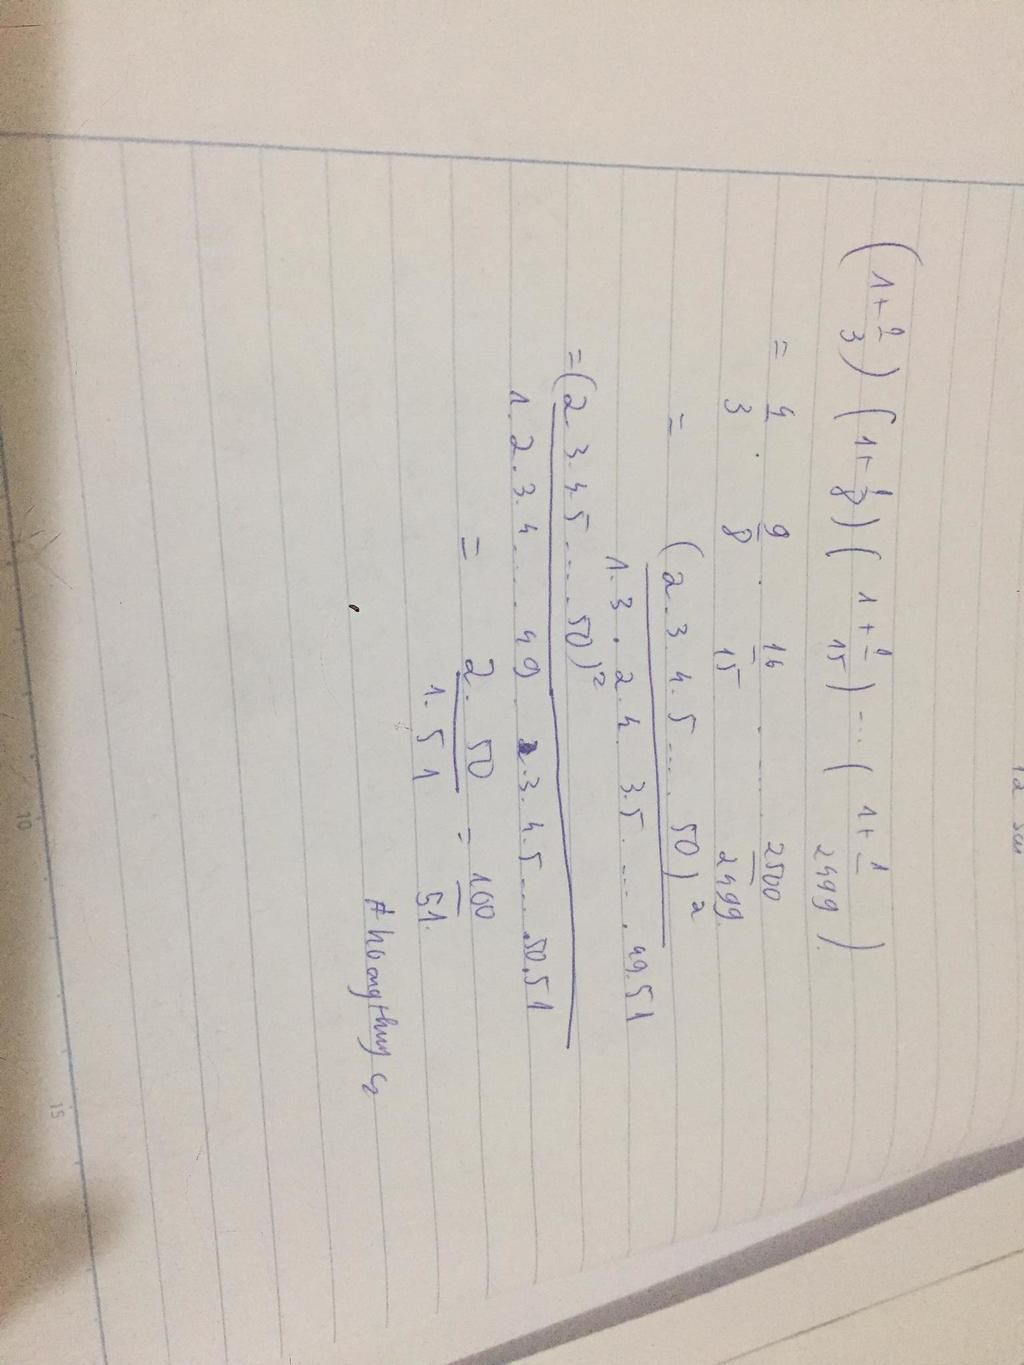 (1+1/3)(1+1/8)(1+1/15)...(1+1/2499)
= 4/3 . 9/8 . 16/15 . .... 2500/2499
= (2.3.4.5.... 50)²
1.3.2.4 3.5. ... . 49.51
= (2.3.4.5.....50)²
1.2.3.4.... 49 2.3.4.5.....50.51
= 2.50/1.51 = 100/51.
10
15